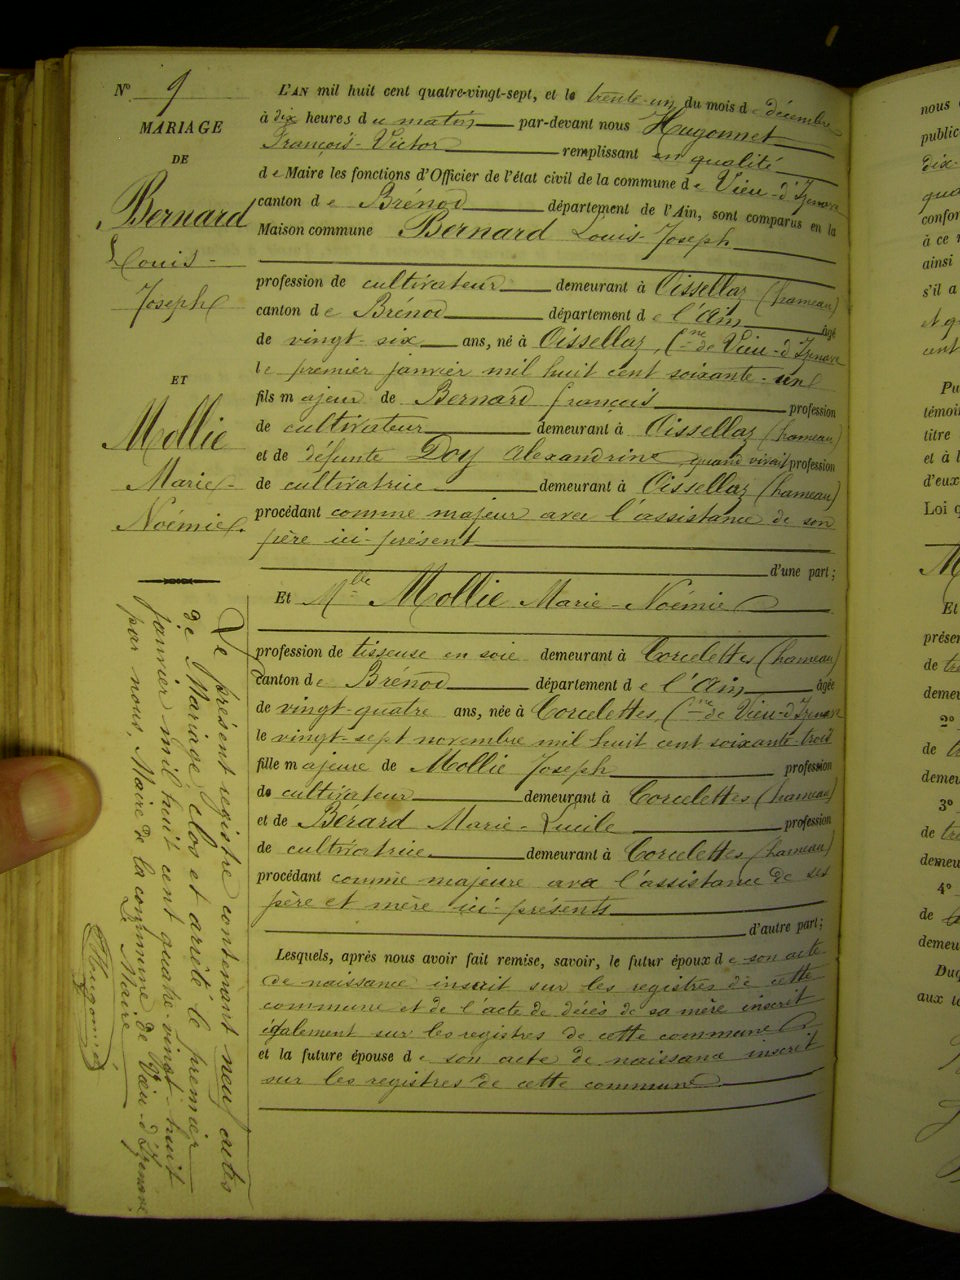 N° 9
MARIAGE
DE
Bernard
Louis-
Joseph
ET
Mollie
Marie-
Noémie.
L'AN mil huit cent quatre-vingt-sept, et le trente-un du mois de décembre
à dix heures du matin par-devant nous Hugonnet
François-Victor remplissant en qualité
de Maire les fonctions d'Officier de l'état civil de la commune de Vieu-d'Izenave
canton de Brénod département de l'Ain, sont comparus en la
Maison commune Bernard Louis-Joseph
profession de cultivateur demeurant à Oissellaz (hameau)
canton de Brénod département de l'Ain âgé
de vingt-six ans, né à Oissellaz, Cne de Vieu-d'Izenave
le premier janvier mil huit cent soixante-un
fils majeur de Bernard françois profession
de cultivateur demeurant à Oissellaz (hameau)
et de défunte Doy Alexandrine quand vivait profession
de cultivatrice demeurant à Oissellaz (hameau)
procédant comme majeur avec l'assistance de son
père ici-présent
d'une part;
Et Mlle Mollie Marie-Noémie
profession de tisseuse en soie demeurant à Corcelettes (hameau)
canton de Brénod département de l'Ain âgée
de vingt-quatre ans, née à Corcelettes, Cne de Vieu-d'Izenave
le vingt-sept novembre mil huit cent soixante-trois
fille majeure de Mollie Joseph profession
de cultivateur demeurant à Corcelettes (hameau)
et de Bérard Marie-Lucile profession
de cultivatrice demeurant à Corcelettes (hameau)
procédant comme majeure avec l'assistance de ses
père et mère ici-présents
d'autre part;
Lesquels, après nous avoir fait remise, savoir, le futur époux de son acte
de naissance inscrit sur les registres de cette
commune et de l'acte de décès de sa mère inscrit
également sur les registres de cette commune
et la future épouse de son acte de naissance inscrit
sur les registres de cette commune
Le présent registre contenant neuf actes
de Mariage, clos et arrêté le premier
janvier mil huit cent quatre-vingt-huit
par nous, Maire de la commune de Vieu-d'Izenave,
Le Maire
Hugonnet
nous
public
dix-
confor
à ce
ainsi
s'il a
et q
cent
Pu
témoi
titre
et à l
d'eux
Loi q
M
Et
prése
de
demeu
2°
de
demeu
3°
de
demeu
4°
de
demeu
Duq
aux